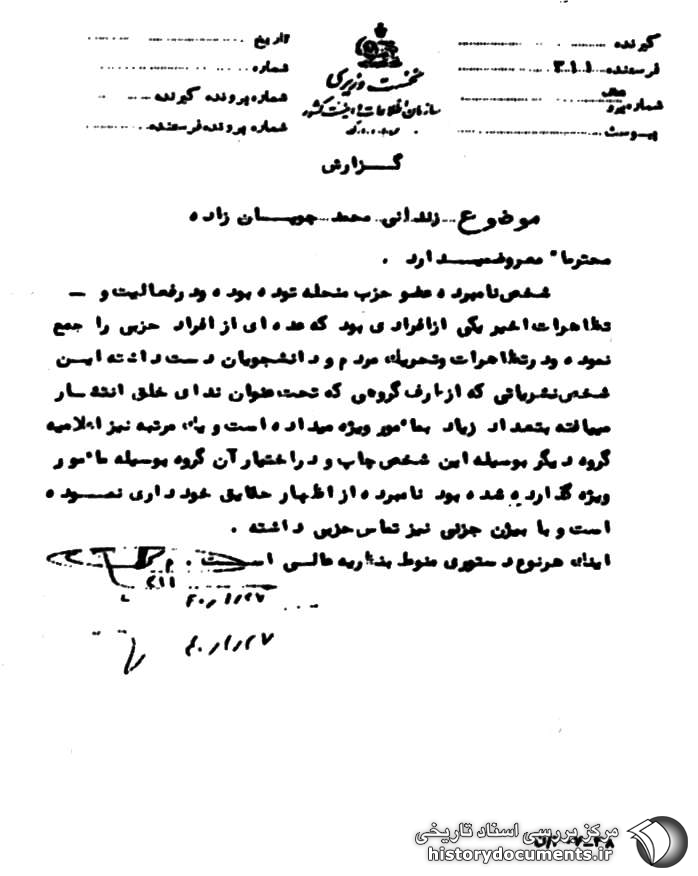 گیرنده
تاریخ
فرستنده ۳۱۱
شماره
شماره پرونده گیرنده
پیوست
شماره پرونده فرستنده
نخست وزیری
سازمان اطلاعات و امنیت کشور
گزارش
موضوع زندانی محمد چوپان زاده
محترما" معروضمیدارد .
شخص نامبرده عضو حزب منحله توده بوده و در فعالیت و
تظاهرات اخیر یکی از افرادی بود که عده ای از افراد حزبی را جمع
نموده و در تظاهرات و تحریک مردم و دانشجویان دست داشته این
شخص نشریاتی که از طرف گروهی که تحت عنوان ندای خلق انتشار
مییافته بتعداد زیاد بمامور ویژه میداده است و یک مرتبه نیز اعلامیه
گروه دیگر بوسیله این شخص چاپ و در اختیار آن گروه بوسیله مامور
ویژه گذارده شده بود نامبرده از اظهار حقایق خودداری نموده
است و با بیژن جزنی نیز تماس حزبی داشته .
اینک هر نوع دستوری منوط بنظریه عالی است . م
۳۱۱
۴۰/۱/۲۷
۴۰/۱/۲۷
مرکز بررسی اسناد تاریخی
historydocuments.ir